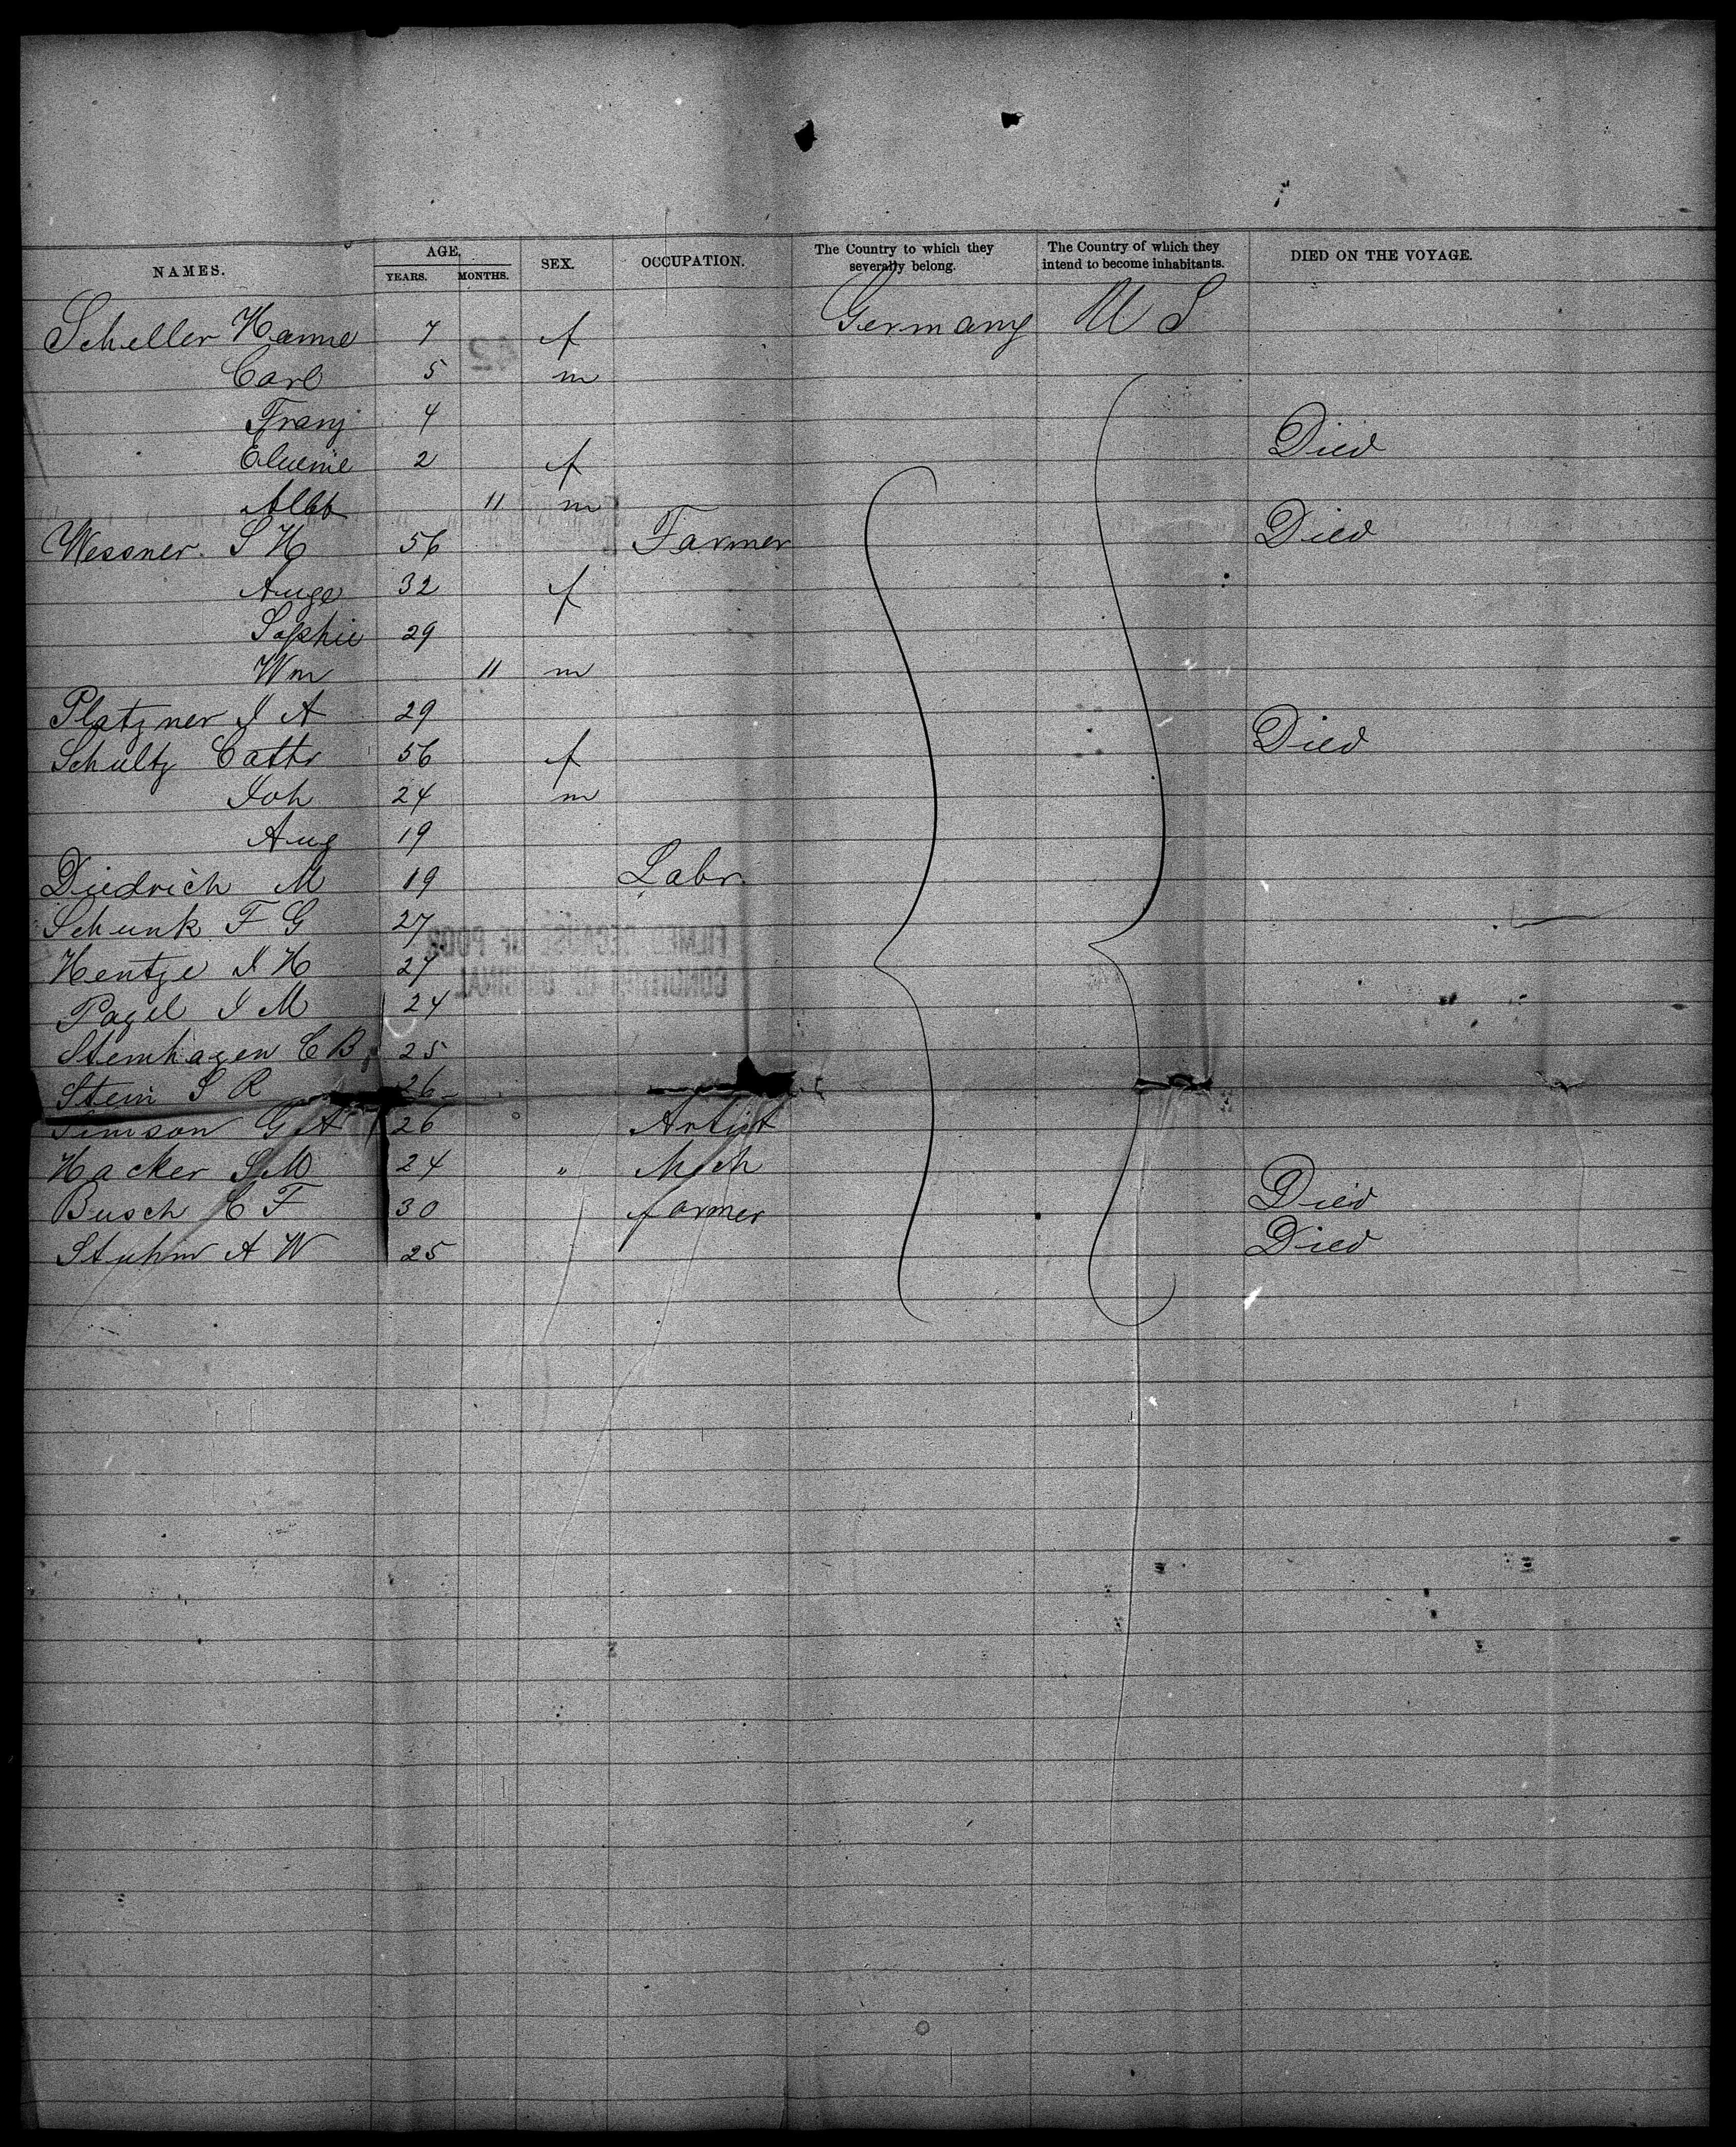 NAMES. AGE. YEARS. MONTHS. SEX. OCCUPATION. The Country to which they severally belong. The Country of which they intend to become inhabitants. DIED ON THE VOYAGE.
Scheller Hanne 7 f Germany U S
Carl 5 m
Franz 4 Died
2 f
Albt 11 m
Wessner. S H 56 Farmer Died
Auge 32 f
Sophie 29
Wm 11 m
Platzner I A 29 Died
Schultz Cath 56 f
Joh 24 m
Aug 19
Diedrich M 19 Labr.
Schunk F G 27
Hentze I H 27
Pagel I M 24
Stemhagen C B 25
Stein S R 26
Simson G A 26 Artist
Hacker S M 24 " Mch
Busch C F 30 farmer Died
Stuhm A W 25 Died
42
FILMED BECAUSE OF POOR
CONDITION OF ORIGINAL